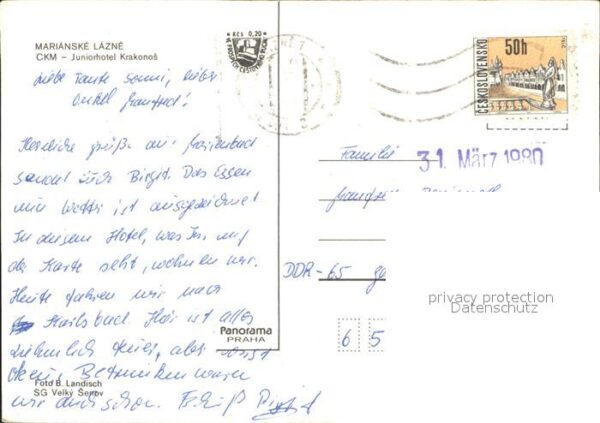 MARIÁNSKÉ LÁZNĚ
CKM – Juniorhotel Krakonoš
Liebe Tante Sonni, lieber
Onkel Manfred!
Herzliche Grüße aus Marienbad
sendet Euch Birgit. Das Essen
und Wetter ist ausgezeichnet.
In diesem Hotel, was Ihr auf
der Karte seht, wohnen wir.
Heute fahren wir nach
Karlsbad. Hier ist alles
ziemlich teuer, aber sonst
waren
wir auch schon.
Foto B. Landisch
SG Velký Šenov
Panorama
PRAHA
Kčs 0,20
ČESKOSLOVENSKO
50h
31. März 1980
Familie
DDR-65
6 5
privacy protection
Datenschutz